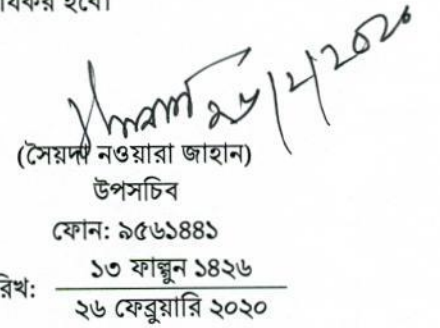 হবে।
(সৈয়দা নওয়ারা জাহান)
উপসচিব
ফোন: ৯৫৬১৪৪১
১৩ ফাল্গুন ১৪২৬
রিখ:
২৬ ফেব্রুয়ারি ২০২০